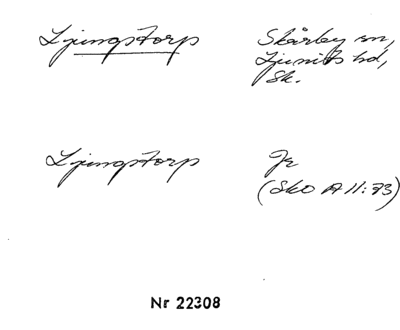 Ljungstorp
Skårby sn,
Ljunits hd,
Sk.
Ljungstorp
Je
(Sko A 11:73)
Nr 22308